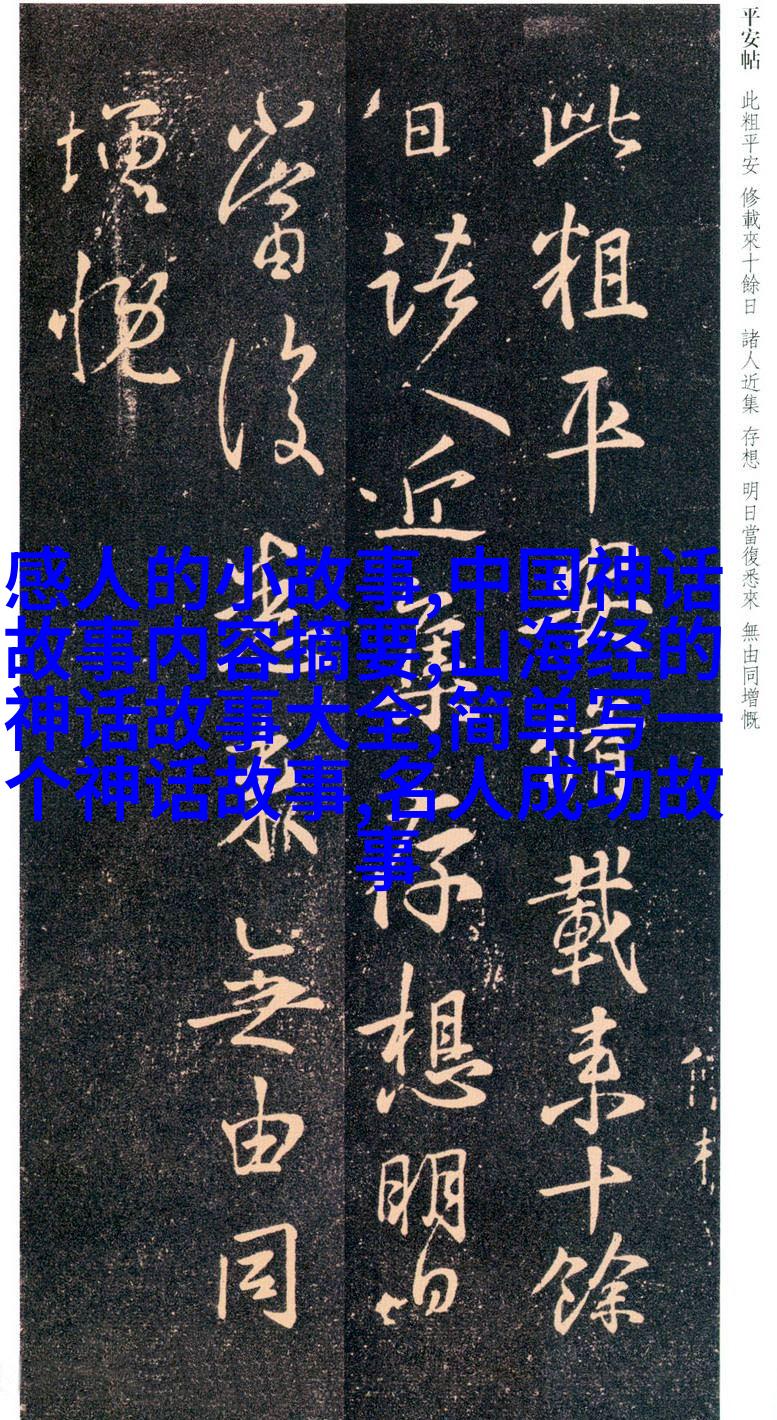 平安帖 此粗平安 修載來十餘日 諸人近集 存想 明日當復悉來 無由同增慨
此粗平安脩載来十餘
日諸人近集存想明日
當復悉來無由同
增慨
感人的小故事,中国神话
故事内容摘要,山海经的
神话故事大全,简单写一
个神话故事,名人成功故
事